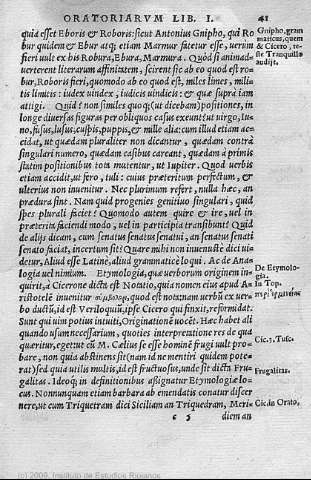 ORATORIARVM LIB. I. 41
quia esset Eboris & Roboris: sicut Antonius Gnipho, qui Ro
bur quidem & Ebur atq; etiam Marmur fatetur esse, uerum
fieri uult ex his Robura, Ebura, Marmura. Quòd si animad-
uerterent literarum affinitatem, scirent sic ab eo quod est ro-
bur, Roboris fieri, quomodo ab eo quod est, miles limes, mili-
tis limitis: iudex uindex, iudicis uindicis: & quæ suprà iam
attigi. Quid? non similes quoq; (ut dicebam) positiones, in
longè diuersas figuras per obliquos casus exeunt? ut uirgo, Iu-
no, fusus, lusus, cuspis, puppis, & mille alia: cum illud etiam ac-
cidat, ut quædam pluraliter non dicantur, quædam contrà
singulari numero, quædam casibus careant, quædam à primis
statim positionibus tota mutentur, ut Iupiter. Quod uerbis
etiam accidit, ut fero, tuli: cuius præteritum perfectum, &
ulterius non inuenitur. Nec plurimum refert, nulla hæc, an
prædura sint. Nam quid progenies genitiuo singulari, quid
spes plurali faciet? Quomodo autem quire & ire, uel in
præterita faciendi modo, uel in participia transibunt? Quid
de alijs dicam, cum senatus senatus senatui, an senatus senati
senato faciat, incertum sit? Quare mihi non inuenustè dici ui-
detur, Aliud esse Latinè, aliud grammaticè loqui. Ac de Ana-
logia uel nimium. Etymologia, quæ uerborum originem in-
quirit, à Cicerone dicta est Notatio, quia nomen eius apud A-
ristotelē inuenitur σύμβολον, quod est nota: nam uerbū ex uer-
bo ductū, id est Veriloquiū, ipse Cicero qui finxit, reformidat.
Sunt qui uim potius intuiti, Originationē uocēt. Hæc habet ali
quando usum necessarium, quoties interpretatione res de qua
quæritur, eget: ut cū M. Cælius se esse hominē frugi uult pro-
bare, non quia abstinens sit (nam id ne mentiri quidem pote
rat) sed quia utilis multis, id est fructuosus, unde sit dicta Fru-
galitas. Ideoq; in definitionibus aßignatur Etymologiæ lo-
cus. Nonnunquam etiam barbara ab emendatis conatur discer
nere, ut cum Triquetram dici Siciliam an Triquedram, Meri-
c 5 diem an
Gnipho, gram
maticus, quem
& Cicero, te-
ste Tranquillo
audijt.
De Etymolo-
gia.
In Top.
Cic. 1. Tusc.
Frugalitas.
Cic. in Orato.
(c) 2009. Instituto de Estudios Riojanos